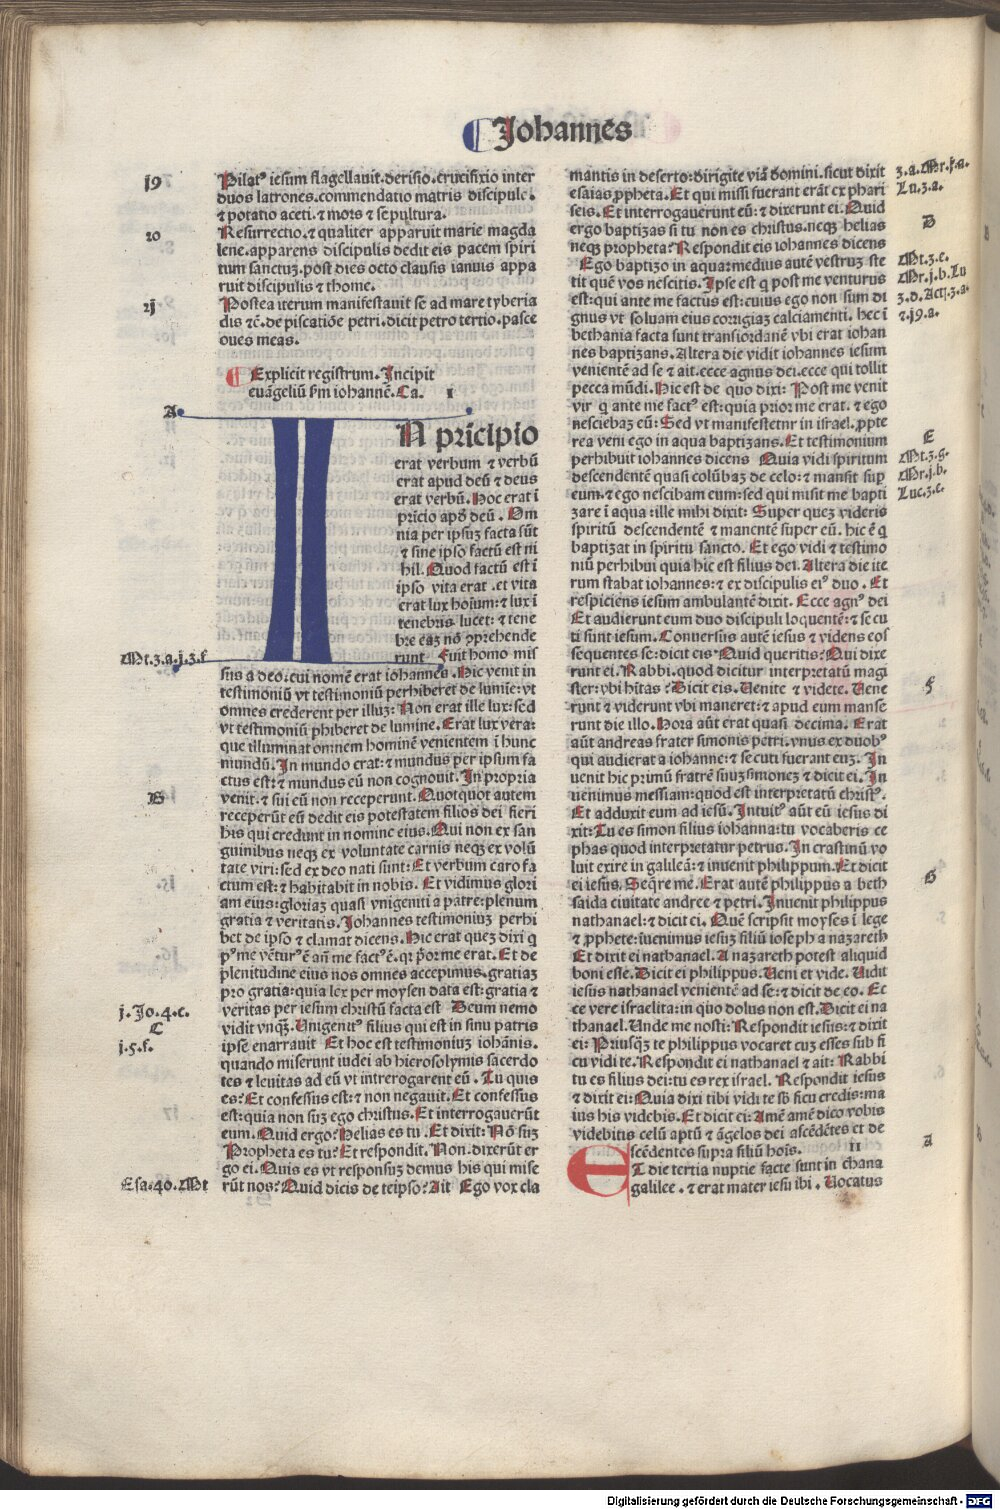 Johannes
j9
Pilatꝰ iesum flagellauit.derisio.crucifixio inter
duos latrones.commendatio matris discipulo.
⁊ potatio aceti.⁊ mors ⁊ sepultura.
20
Resurrectio.⁊ qualiter apparuit marie magda
lene.apparens discipulis dedit eis pacem spiri
tum sanctuꝫ.post dies octo clausis ianuis appa
ruit discipulis ⁊ thome.
2j
Postea iterum manifestauit se ad mare tyberia
dis ⁊c̄.de piscatiōe petri.dicit petro tertio.pasce
oues meas.
Explicit registrum. Incipit
euāgeliū ẜm iohannē.Ca. I
A
IN pricipio
erat verbum ⁊ verbū
erat apud deū ⁊ deus
erat verbū. Hoc erat ī
prīcio apd̄ deū. Om
nia per ipsuꝫ facta sūt
⁊ sine ipso factū est ni
hil. Quod factū est ī
ipso vita erat.et vita
erat lux hoīum:⁊ lux ī
tenebris lucet: ⁊ tene
bre eaꝫ nō ꝯprehende
runt Fuit homo mis
Mt.3.a.j.3.f
sus a deo:cui nomē erat iohannes. Hic venit in
testimoniū vt testimoniū perhiberet de lumīe:vt
omnes crederent per illuꝫ: Non erat ille lux:sed
vt testimoniū phiberet de lumine. Erat lux vera:
que illuminat omnem hominē venientem ī hunc
mundū. In mundo erat:⁊ mundus per ipsum fa
ctus est:⁊ mundus eū non cognouit. In propria
B
venit.⁊ sui eū non receperunt. Quotquot autem
receperūt eū dedit eis potestatem filios dei fieri
his qui credunt in nomine eius. Qui non ex san
guinibus neqꝫ ex voluntate carnis neqꝫ ex volū
tate viri:sed ex deo nati sunt: Et verbum caro fa
ctum est:⁊ habitabit in nobis. Et vidimus glori
am eius:gloriaꝫ quasi vnigeniti a patre:plenum
gratia ⁊ veritatis. Johannes testimoniuꝫ perhi
bet de ipso ⁊ clamat dicens. Hic erat queꝫ dixi q̄
pꝰme vēturꝰē an̄ me factꝰē.qꝛ p̄orme erat. Et de
plenitudine eius nos omnes accepimus.gratiaꝫ
pro gratia:quia lex per moysen data est:gratia ⁊
j.Jo.4.c.
veritas per iesum christū facta est Deum nemo
C
vidit vnqꝫ. Unigenitꝰ filius qui est in sinu patris
j.5.f.
ipse enarrauit Et hoc est testimoniuꝫ iohānis.
quando miserunt iudei ab hierosolymis sacerdo
tes ⁊ leuitas ad eū vt intrerogarent eū. Tu quis
es? Et confessus est:⁊ non negauit. Et confessus
est:quia non suꝫ ego christus. Et interrogauerūt
eum. Quid ergo? Helias es tu. Et dixit: Nō suꝫ
Propheta es tu? Et respondit. Non. dixerūt er
go ei. Quis es vt responsuꝫ demus his qui mise
Esa.40.Mt
rūt nos? Quid dicis de teipso? Ait Ego vox cla
mantis in deserto:dirigite viā domini.sicut dixit
3.a.Mr.j.a.
esaias ꝓpheta. Et qui missi fuerant erāt ex phari
Lu.3.a.
seis. Et interrogauerunt eū:⁊ dixerunt ei. Quid
D
ergo baptizas si tu non es christus.neqꝫ helias
neqꝫ propheta? Respondit eis iohannes dicens
Mt.3.c.
Ego baptizo in aqua:medius autē vestruꝫ ste
Mr.j.b.Lu
tit quē vos nescitis. Ipse est q post me venturus
3.d.Act.j.a.
est:qui ante me factus est:cuius ego non sum di
⁊.j9.a.
gnus vt soluam eius corrigiaꝫ calciamenti. hec ī
bethania facta sunt transiordanē vbi erat iohan
nes baptizans. Altera die vidit iohannes iesum
venientē ad se ⁊ ait.ecce agnus dei.ecce qui tollit
pecca mūdi. Hic est de quo dixi: Post me venit
vir q̄ ante me factꝰ est:quia prior me erat. ⁊ ego
nesciebaꝫ eū: Sed vt manifestetnr in israel.ꝓpte
E
rea veni ego in aqua baptizans. Et testimonium
Mt.3.g.
perhibuit iohannes dicens Quia vidi spiritum
Mr.j.b.
descendentē quasi colūbaꝫ de celo:⁊ mansit sup
Luc.3.c.
eum.⁊ ego nescibam eum:sed qui misit me bapti
zare ī aqua:ille mihi dixit: Super queꝫ videris
spiritū descendentē ⁊ manentē super eū. hic ē q̄
baptizat in spiritu sancto. Et ego vidi ⁊ testimo
niū perhibui quia hic est filius dei. Altera die ite
rum stabat iohannes:⁊ ex discipulis eiꝰ duo. Et
respiciens iesum ambulantē dixit. Ecce agnꝰ dei
Et audierunt eum duo discipuli loquentē:⁊ secu
ti sunt iesum. Conuersus autē iesus ⁊ videns eos
sequentes se:dicit eis Quid queritis? Qui dixe
runt ei. Rabbi.quod dicitur interpretatū magi
F
ster:vbi hītas? Dicit eis. Uenite ⁊ videte. Uene
runt ⁊ viderunt vbi maneret:⁊ apud eum manse
runt die illo. Hora aūt erat quasi decima. Erat
aūt andreas frater simonis petri.vnus ex duobꝰ
qui audierat a iohanne:⁊ secuti fuerant euꝫ. In
uenit hic primū fratrē suuꝫ simoneꝫ ⁊ dicit ei. In
uenimus messiam:quod est interpretatū christꝰ.
Et adduxit eum ad iesū. Intuitꝰ aūt eū iesus di
xit: Tu es simon filius iohanna:tu vocaberis ce
phas quod interpretatur petrus. In crastinū vo
luit exire in galileā:⁊ inuenit philippum. Et dicit
G
ei iesus. Seq̄re me. Erat autē philippus a beth
saida ciuitate andree ⁊ petri. Inuenit philippus
nathanael:⁊ dicit ei. Quē scripsit moyses ī lege
⁊ ꝓphete:īuenimus iesuꝫ filiū ioseph a nazareth
Et dixit ei nathanael. A nazareth potest aliquid
boni esse. Dicit ei philippus. Ueni et vide. Uidit
iesus nathanael venientē ad se:⁊ dicit de eo. Ec
ce vere israelita:in quo dolus non est. Dicit ei na
thanael. Unde me nosti: Respondit iesus:⁊ dixit
ei: Priusqꝫ te philippus vocaret cuꝫ esses sub fi
cu vidi te. Respondit ei nathanael ⁊ ait: Rabbi
tu es filius dei:tu es rex israel. Respondit iesus
⁊ dixit ei: Quia dixi tibi vidi te sb̄ ficu credis:ma
ius his videbis. Et dicit ei: Amē amē dico vobis
videbitis celū aptū ⁊ āgelos dei ascēdētes et de
A
scēdentes supra filiū hoīs. II
ET die tertia nuptie facte sunt in chana
galilee.⁊ erat mater iesu ibi. Uocatus
Digitalisierung gefördert durch die Deutsche Forschungsgemeinschaft - DFG